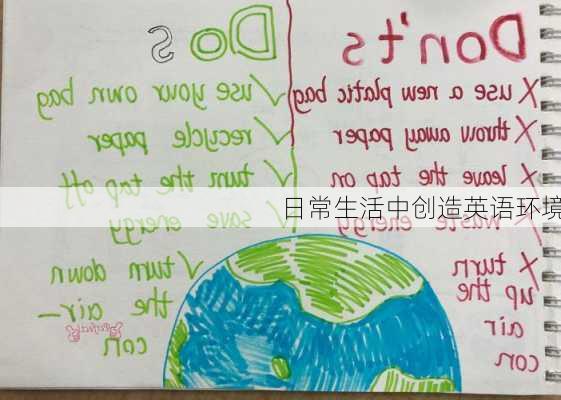 Dos
✓ use your own bag
✓ recycle paper
✓ turn the tap off
✓ save energy
✓ turn down
the air-
con
Don'ts
✗ use a new platic bag
✗ throw away paper
✗ leave the tap on
✗ waste energy
✗ turn
up the
air
con
日常生活中创造英语环境